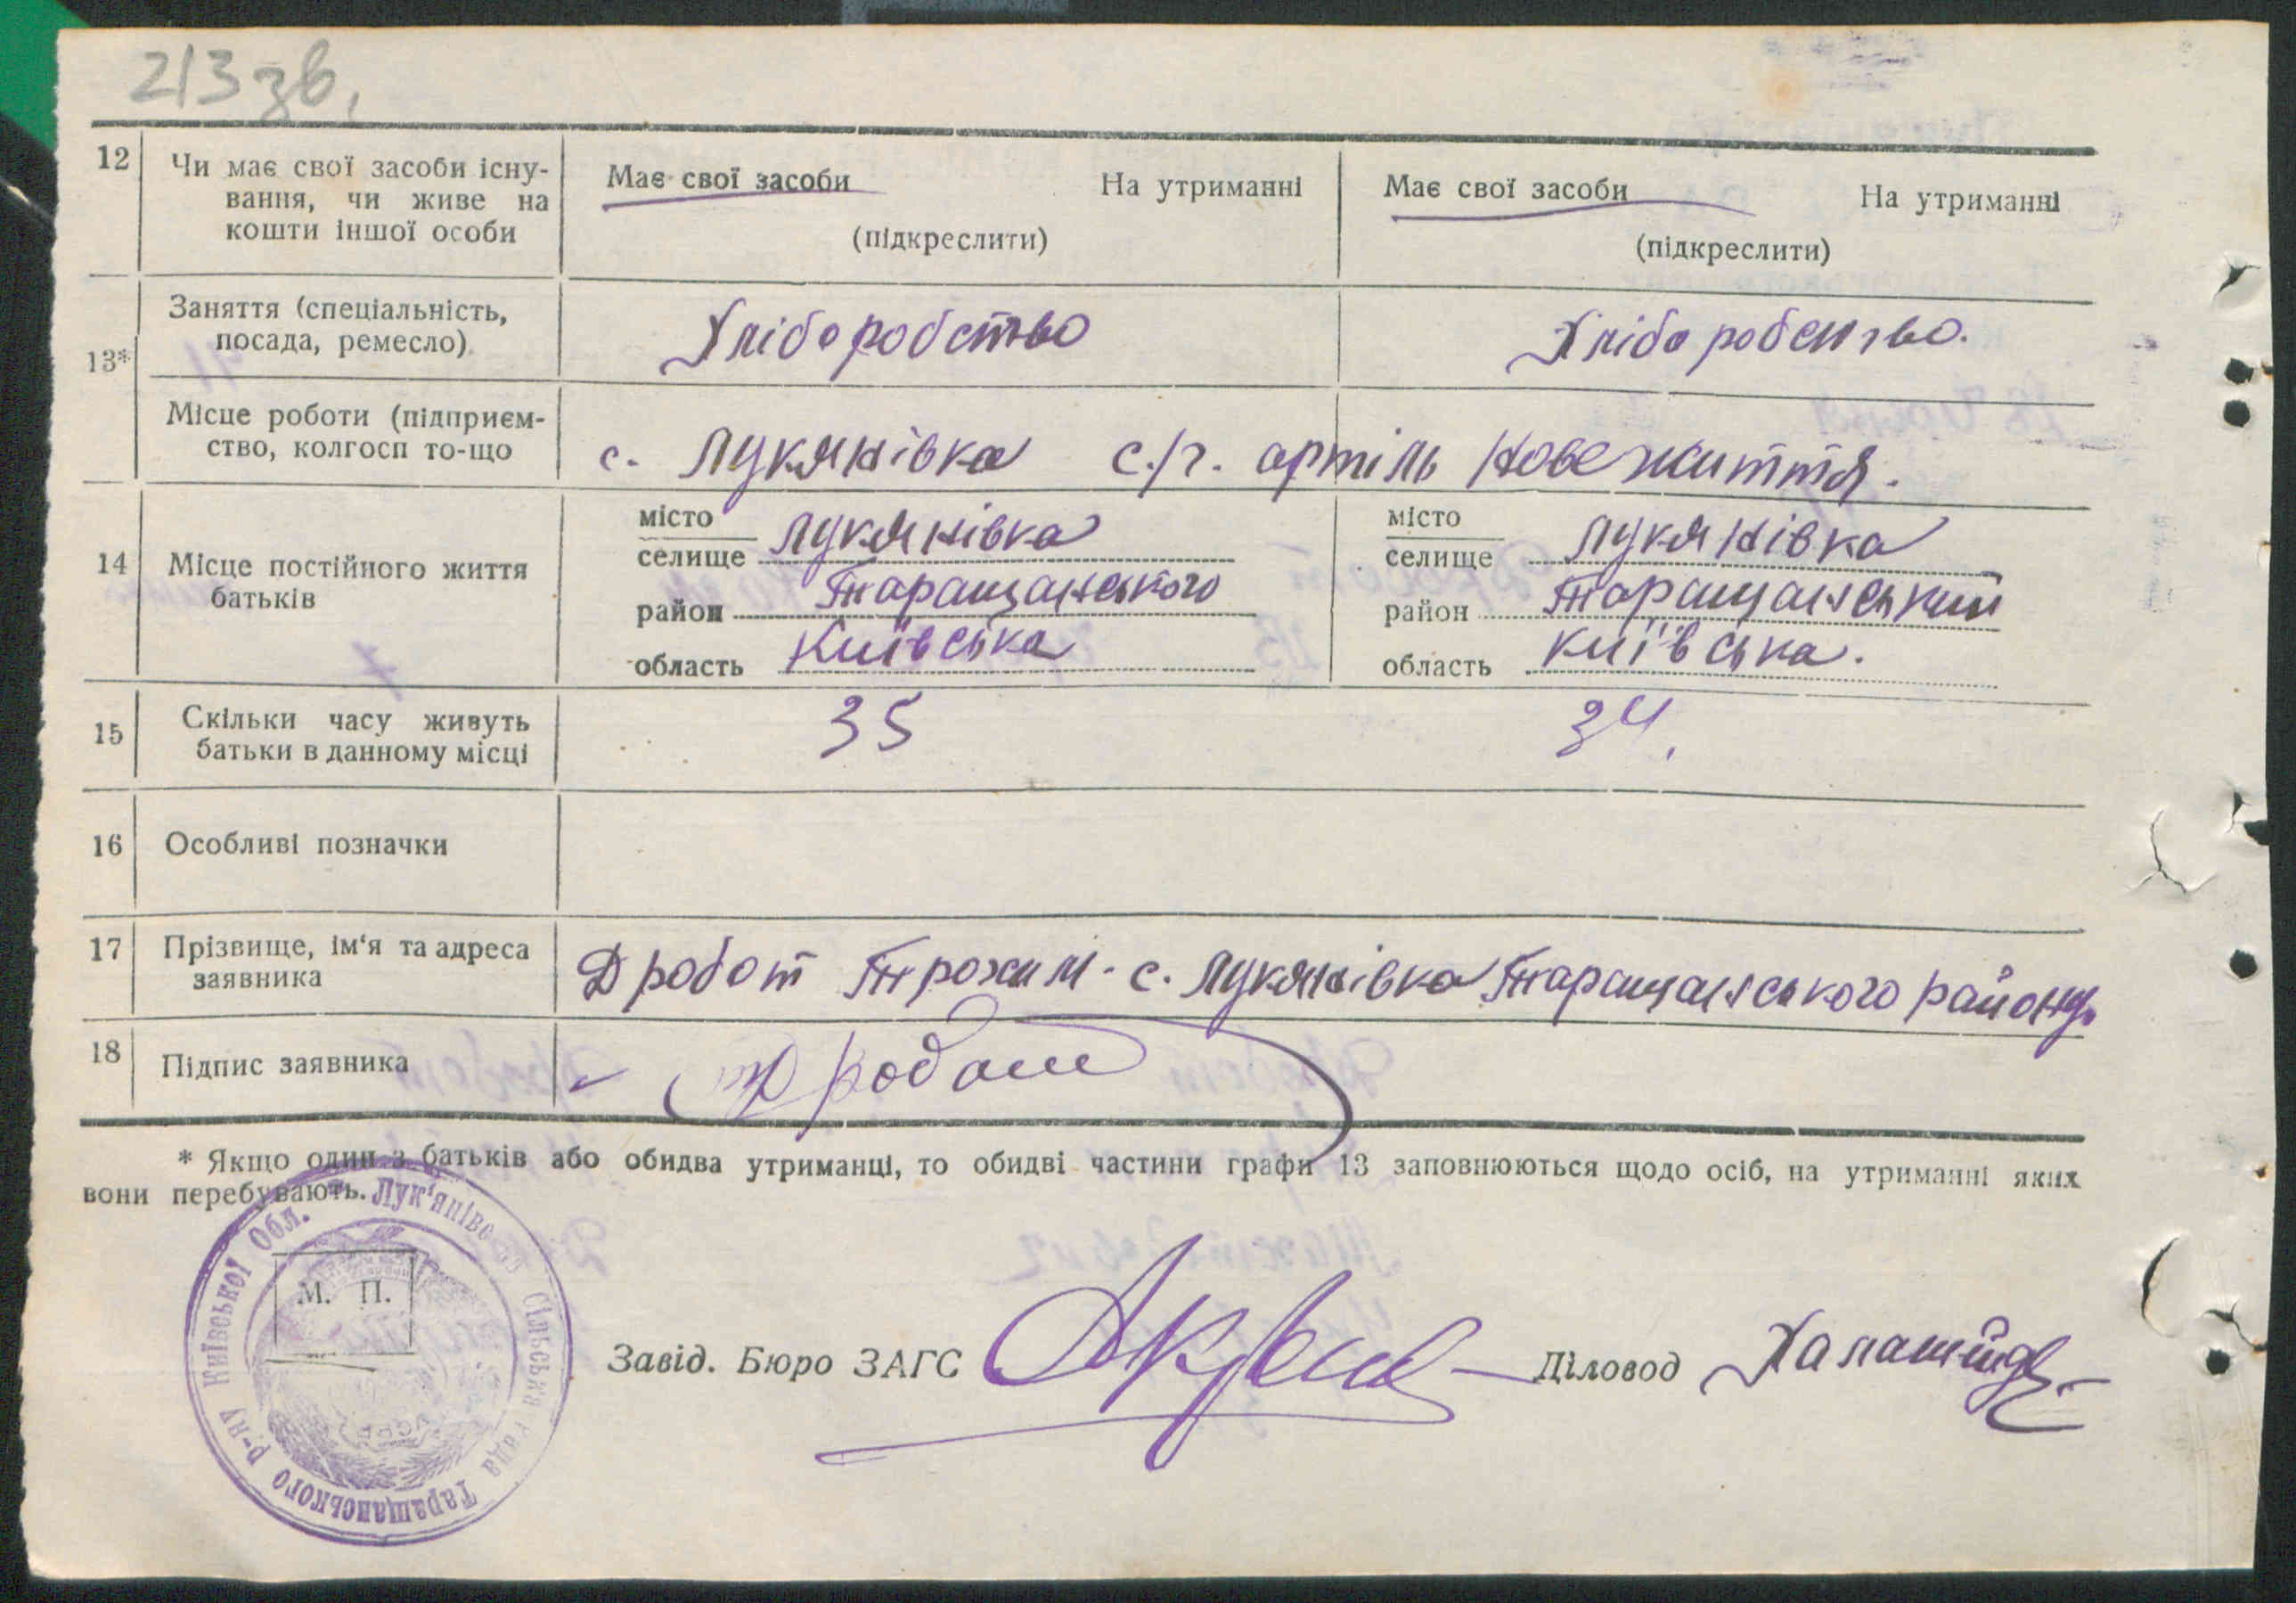 213 зв.
12
Чи має свої засоби існу-
вання, чи живе на
кошти іншої особи
Має свої засоби На утриманні
(підкреслити)
Має свої засоби На утриманні
(підкреслити)
13*
Заняття (спеціальність,
посада, ремесло)
Хліборобство
Хліборобство.
Місце роботи (підприєм-
ство, колгосп то-що
с. Лукянівка с/г. артіль Нове життя.
14
Місце постійного життя
батьків
місто
селище Лукянівка
район Таращанського
область Київська
місто
селище Лукянівка
район Таращанський
область Київська.
15
Скільки часу живуть
батьки в данному місці
35
34.
16
Особливі позначки
17
Прізвище, ім'я та адреса
заявника
Дробот Трохим. с. Лукянівка Таращанського району.
18
Підпис заявника
Дробот
* Якщо один з батьків або обидва утриманці, то обидві частини графи 13 заповнюються щодо осіб, на утриманні яких
вони перебувають.
Лук'янівс Сільська Рада Таращанського р-ну Київської Обл.
М. П.
Завід. Бюро ЗАГС
Діловод